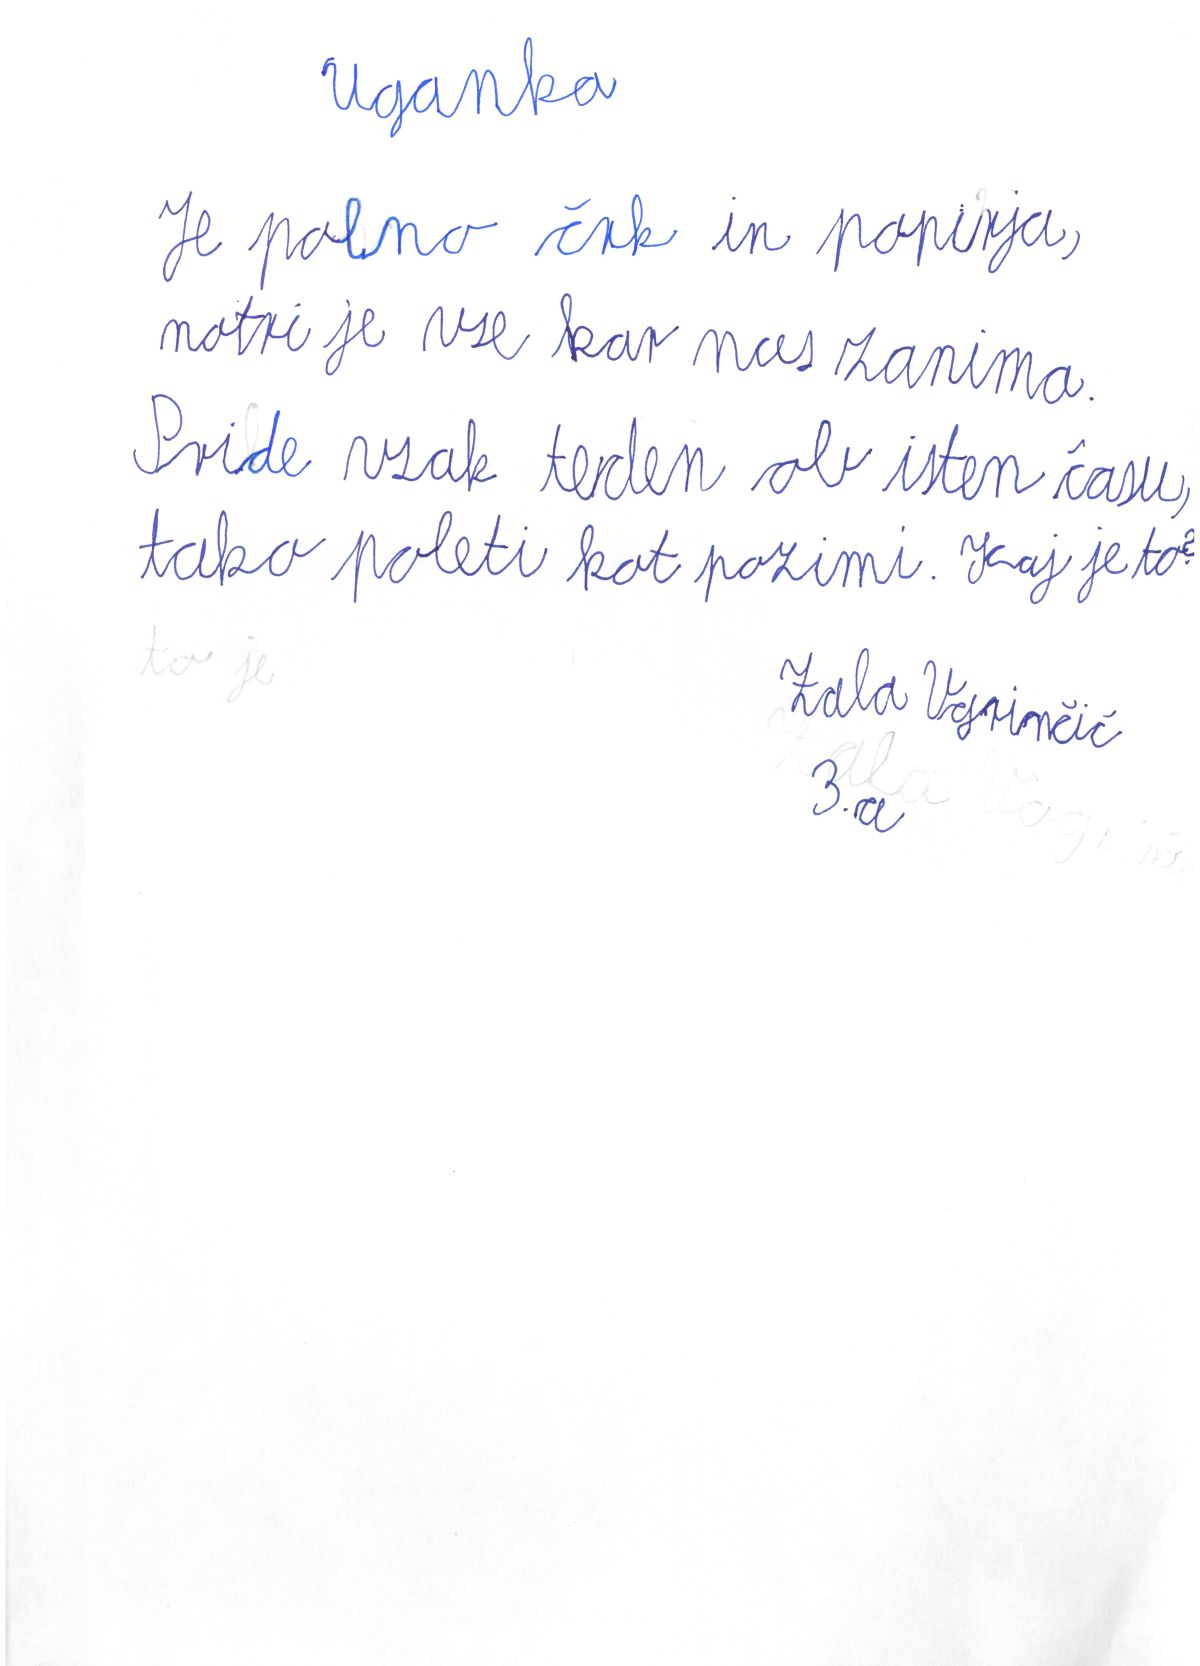 Uganka
Je polno črk in popirja,
notri je vse kar nas zanima.
Pride vsak terden ob isten času,
tako poleti kot pozimi. Kaj je to?
to je
Zala Vgrinčič
Zala
3.a